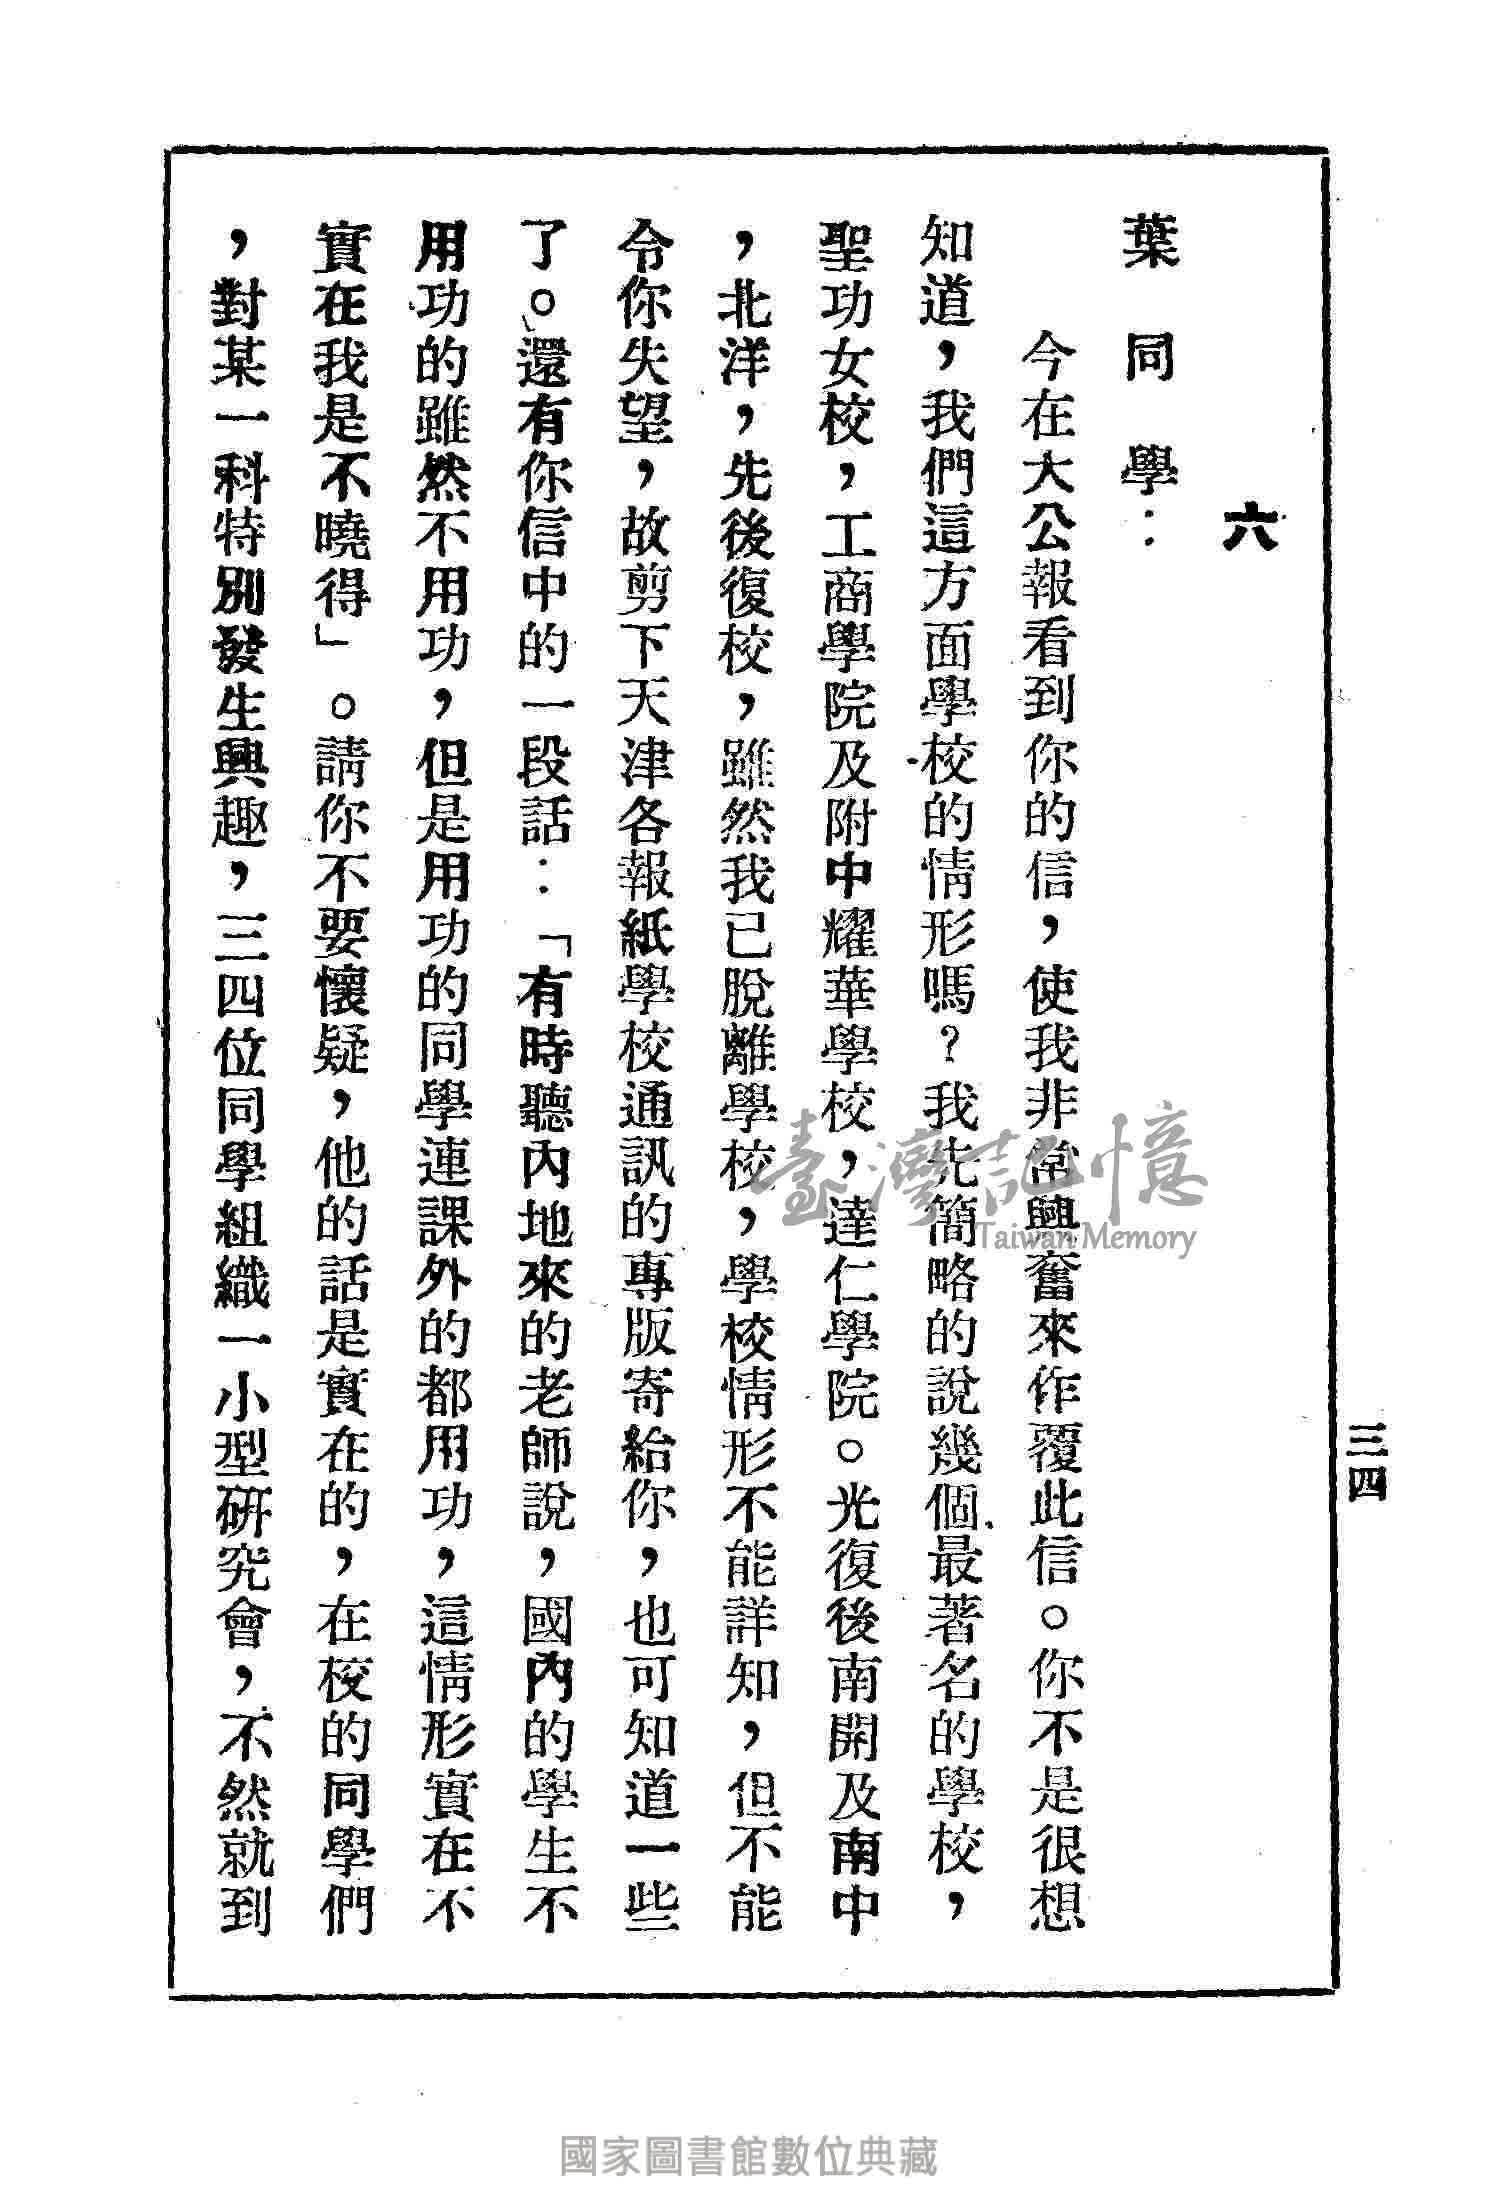 三四
六
葉同學：
今在大公報看到你的信，使我非常興奮來作覆此信。你不是很想
知道，我們這方面學校的情形嗎？我先簡略的說幾個最著名的學校，
聖功女校，工商學院及附中耀華學校，達仁學院。光復後南開及南中
，北洋，先後復校，雖然我已脫離學校，學校情形不能詳知，但不能
令你失望，故剪下天津各報紙學校通訊的專版寄給你，也可知道一些
了。」還有你信中的一段話：「有時聽內地來的老師說，國內的學生不
用功的雖然不用功，但是用功的同學連課外的都用功，這情形實在不
實在我是不曉得」。請你不要懷疑，他的話是實在的，在校的同學們
，對某一科特別發生興趣，三四位同學組織一小型研究會，不然就到
臺灣記憶
Taiwan Memory
國家圖書館數位典藏